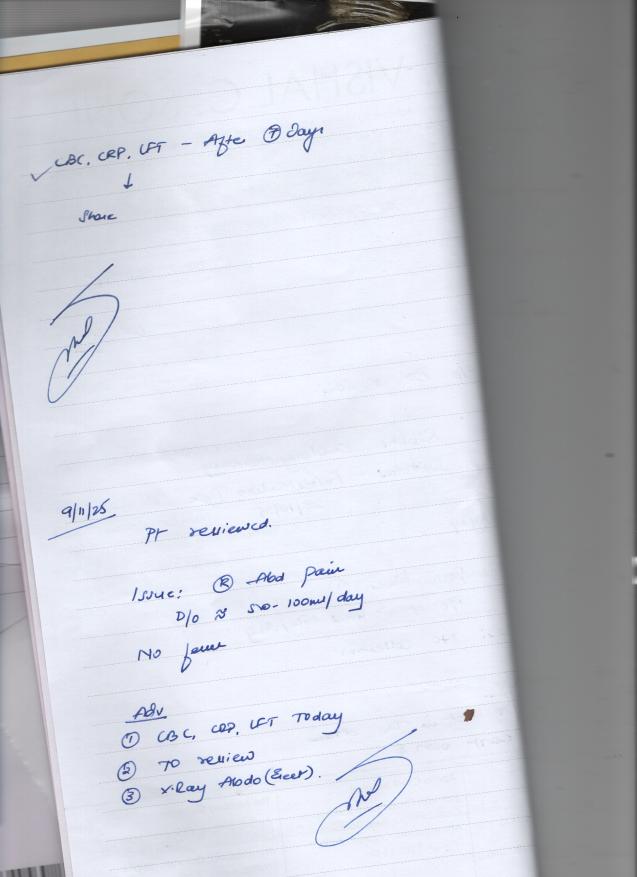 CBC, CRP, LFT - After 7 Days
↓
Share
9/11/25
Pt reviewed.
Issue: R Abd pain
D/O ≈ 50-100ml/day
No fever
Adv
1 CBC, CRP, LFT Today
2 To review
3 X-Ray Abdo (Erect).